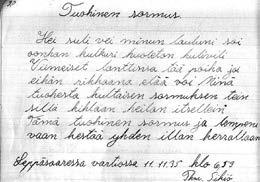 Tuohinen sormus.
Hei suli vei minun lauluni soi
oonhan kulkuri huoleton
Viimeiset lanttinsa tää poika jo
eihän rikkaana elää voi Niinä
tuohesta kultaisen sormuksen tein
sillä kihlaan heilan itsellein
Tämä tuohinen sormus ja lempeni
vaan kestää yhden illan kerrallaan
Leppäsaaressa vartiossa 11.11.35 klo